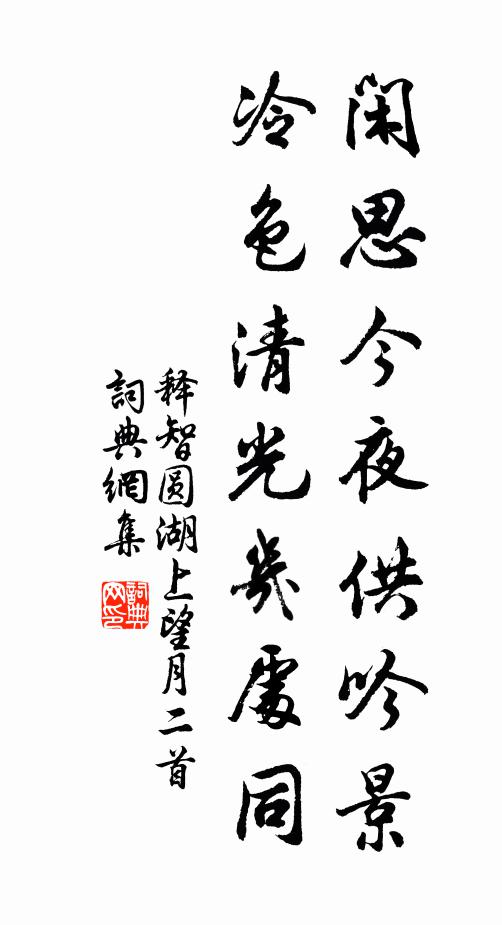 闲思今夜供吟景
冷色清光幾處同
释智圆湖上望月二首
詞典網集
詞典网印